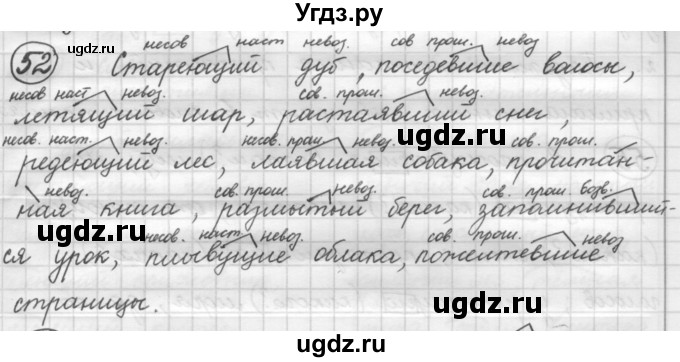 Угдз.ру
52
несов наст невоз. сов прош. невоз
Стареющий дуб, поседевшие волосы,
несов наст невоз. сов. прош. невоз.
летящий шар, растаявший снег,
несов. наст. невоз. несов. прош невоз. сов. прош.
редеющий лес, лаявшая собака, прочитан-
невоз. сов. прош. невоз. сов. прош. возв.
ная книга, размытый берег, запомнивший-
несов. наст. невоз. сов. прош. невоз.
ся урок, плывущие облака, пожелтевшие
страницы.
ugdz.ru
ugdz.ru
ugdz.ru
ugdz.ru
ugdz.ru